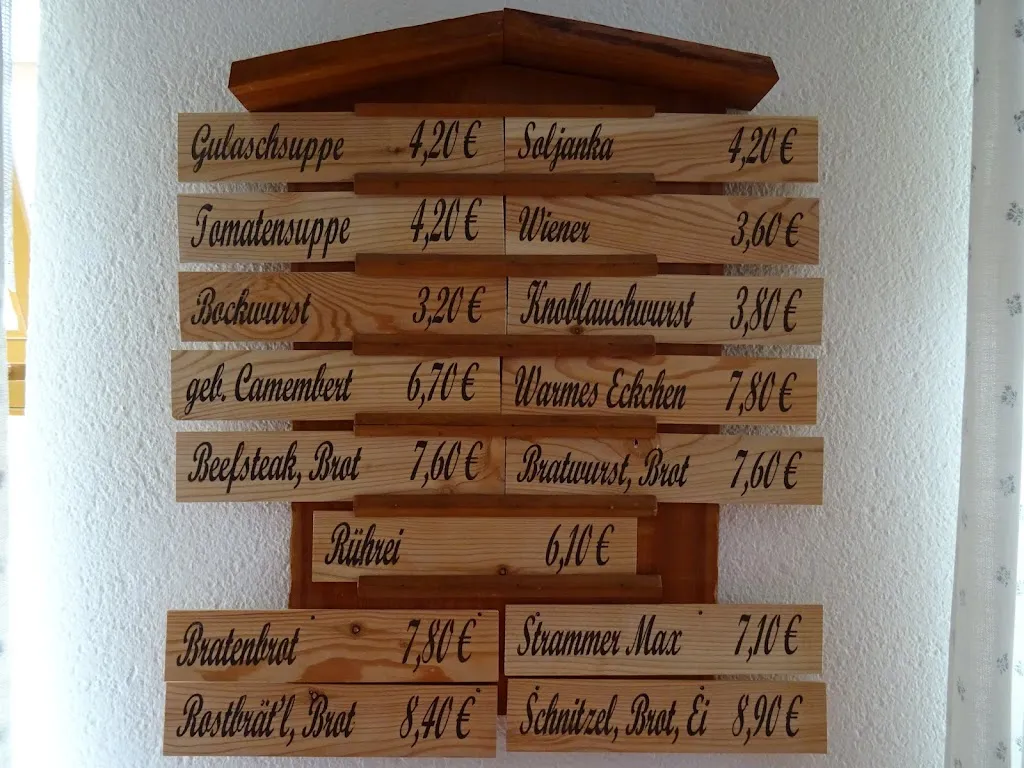 Gulaschsuppe 4,20 € Soljanka 4,20 €
Tomatensuppe 4,20 € Wiener 3,60 €
Bockwurst 3,20 € Knoblauchwurst 3,80 €
geb. Camembert 6,70 € Warmes Eckchen 7,80 €
Beefsteak, Brot 7,60 € Bratwurst, Brot 7,60 €
Rührei 6,10 €
Bratenbrot 7,80 € Strammer Max 7,10 €
Rostbrät'l, Brot 8,40 € Schnitzel, Brot, Ei 8,90 €